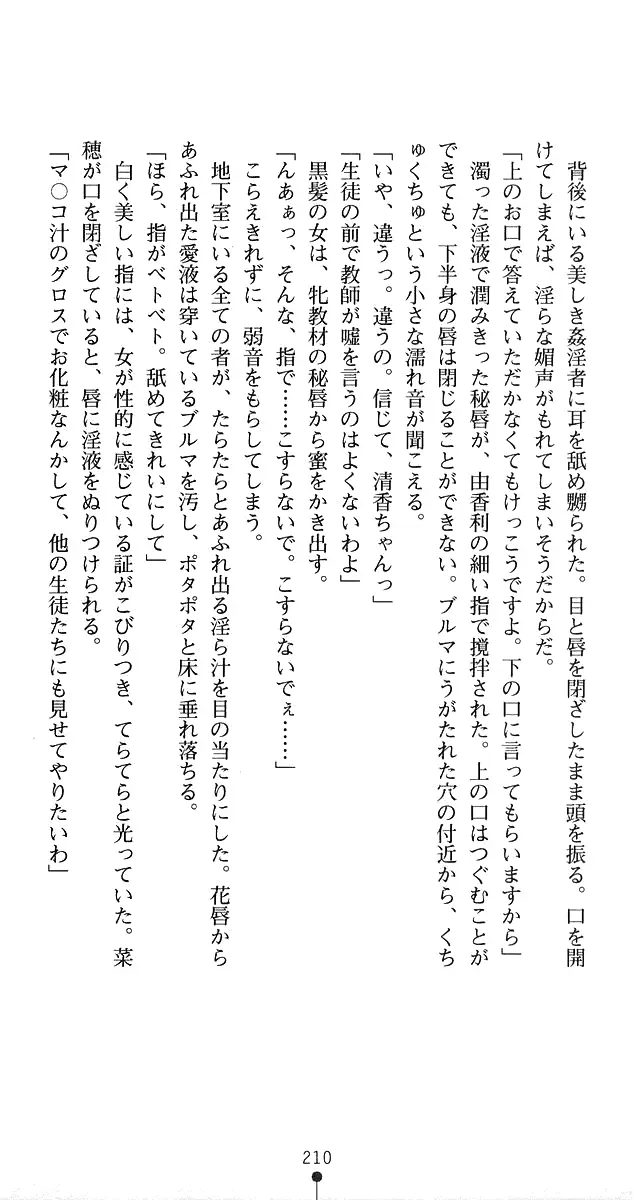 背後にいる美しき姦淫者に耳を舐め嬲られた。目と唇を閉ざしたまま頭を振る。口を開
けてしまえば、淫らな媚声がもれてしまいそうだからだ。
「上のお口で答えていただかなくてもけっこうですよ。下の口に言ってもらいますから」
濁った淫液で潤みきった秘唇が、由香利の細い指で撹拌された。上の口はつぐむことが
できても、下半身の唇は閉じることができない。ブルマにうがたれた穴の付近から、くち
ゅくちゅという小さな濡れ音が聞こえる。
「いや、違うっ。違うの。信じて、清香ちゃんっ」
「生徒の前で教師が嘘を言うのはよくないわよ」
黒髪の女は、牝教材の秘唇から蜜をかき出す。
「んあぁっ、そんな、指で……こすらないで。こすらないでぇ……」
こらえきれずに、弱音をもらしてしまう。
地下室にいる全ての者が、たらたらとあふれ出る淫ら汁を目の当たりにした。花唇から
あふれ出た愛液は穿いているブルマを汚し、ポタポタと床に垂れ落ちる。
「ほら、指がベトベト。舐めてきれいにして」
白く美しい指には、女が性的に感じている証がこびりつき、てらてらと光っていた。菜
穂が口を閉ざしていると、唇に淫液をぬりつけられる。
「マ○コ汁のグロスでお化粧なんかして、他の生徒たちにも見せてやりたいわ」
210